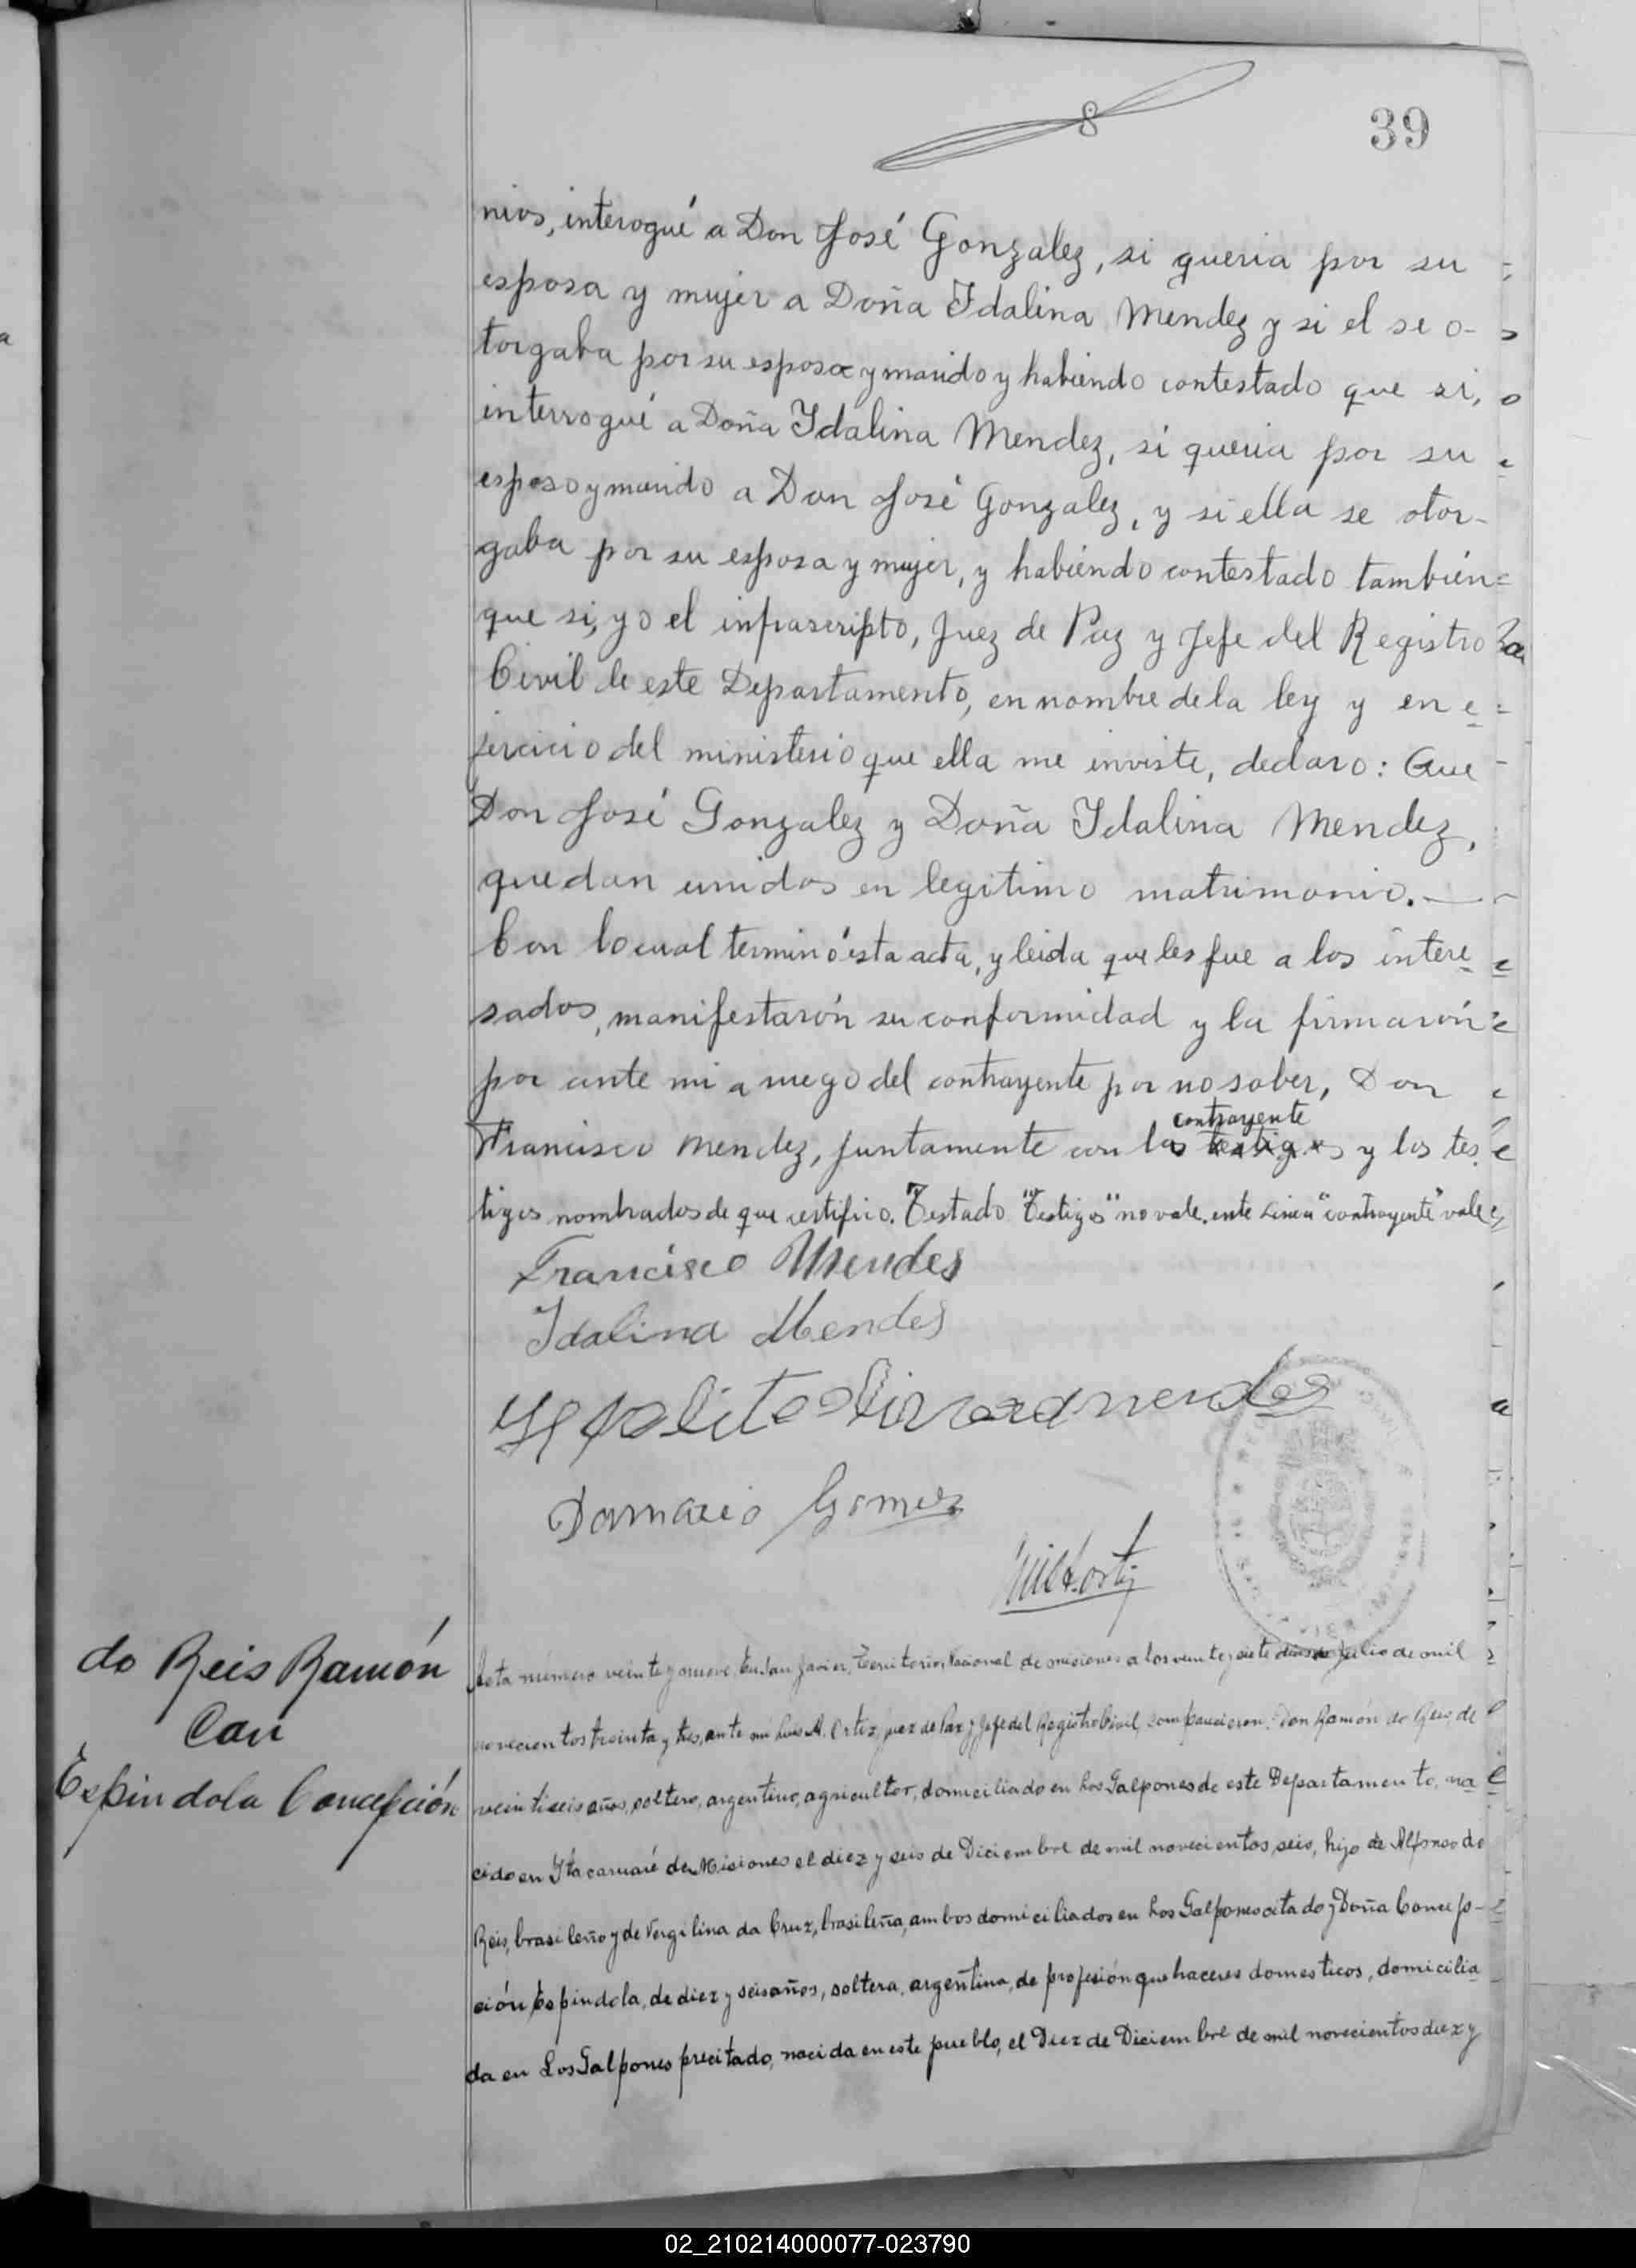 39
nios, interogué a Don José Gonzalez, si queria por su
esposa y mujer a Doña Idalina Mendez y si el se o-
torgaba por su esposo y marido y habiendo contestado que si,
interrogué a Doña Idalina Mendez, si queria por su
esposo y marido a Don José Gonzalez, y si ella se otor-
gaba por su esposa y mujer, y habiendo contestado también
que si, yo el infrascripto, Juez de Paz y Jefe del Registro
Civil de este Departamento, en nombre de la ley y en e
jercicio del ministerio que ella me inviste, declaro: Que
Don José Gonzalez y Doña Idalina Mendez,
quedan unidos en legitimo matrimonio.—
Con lo cual terminó esta acta, y leida que les fue a los intere
sados, manifestarón su conformidad y la firmarón
por ante mi a ruego del contrayente por no saber, Don
contrayente
Francisco Mendez, juntamente con las testigos y los tes
tigos nombrados de que certifico. Testado "Testigos" no vale. ente linea "contrayente" vale
Francisco Mendes
Idalina Mendes
Damacio Gomez
do Reis Ramón
Con
Espindola Concepción
Acta número veinte y nueve. En San Javier, Territorio Nacional de misiones a los veinte y siete dias de Julio de mil
novecientos treinta y tres, ante mi Luis A. Ortiz, juez de Paz y Jefe del Registro Civil, comparecieron: Don Ramón do Reis, de
veintiseis años, soltero, argentino, agricultor, domiciliado en Los Galpones de este Departamento, na
cido en Itacaruaré de Misiones el diez y seis de Diciembre de mil novecientos seis, hijo de Alfonso do
Reis, brasileño y de Vergilina da Cruz, brasileña, ambos domiciliados en Los Galpones citado y Doña Concep-
ción Espindola, de diez y seis años, soltera, argentina, de profesión quehaceres domesticos, domicilia
da en Los Galpones precitado, nacida en este pueblo, el Diez de Diciembre de mil novecientos diez y
02_210214000077-023790